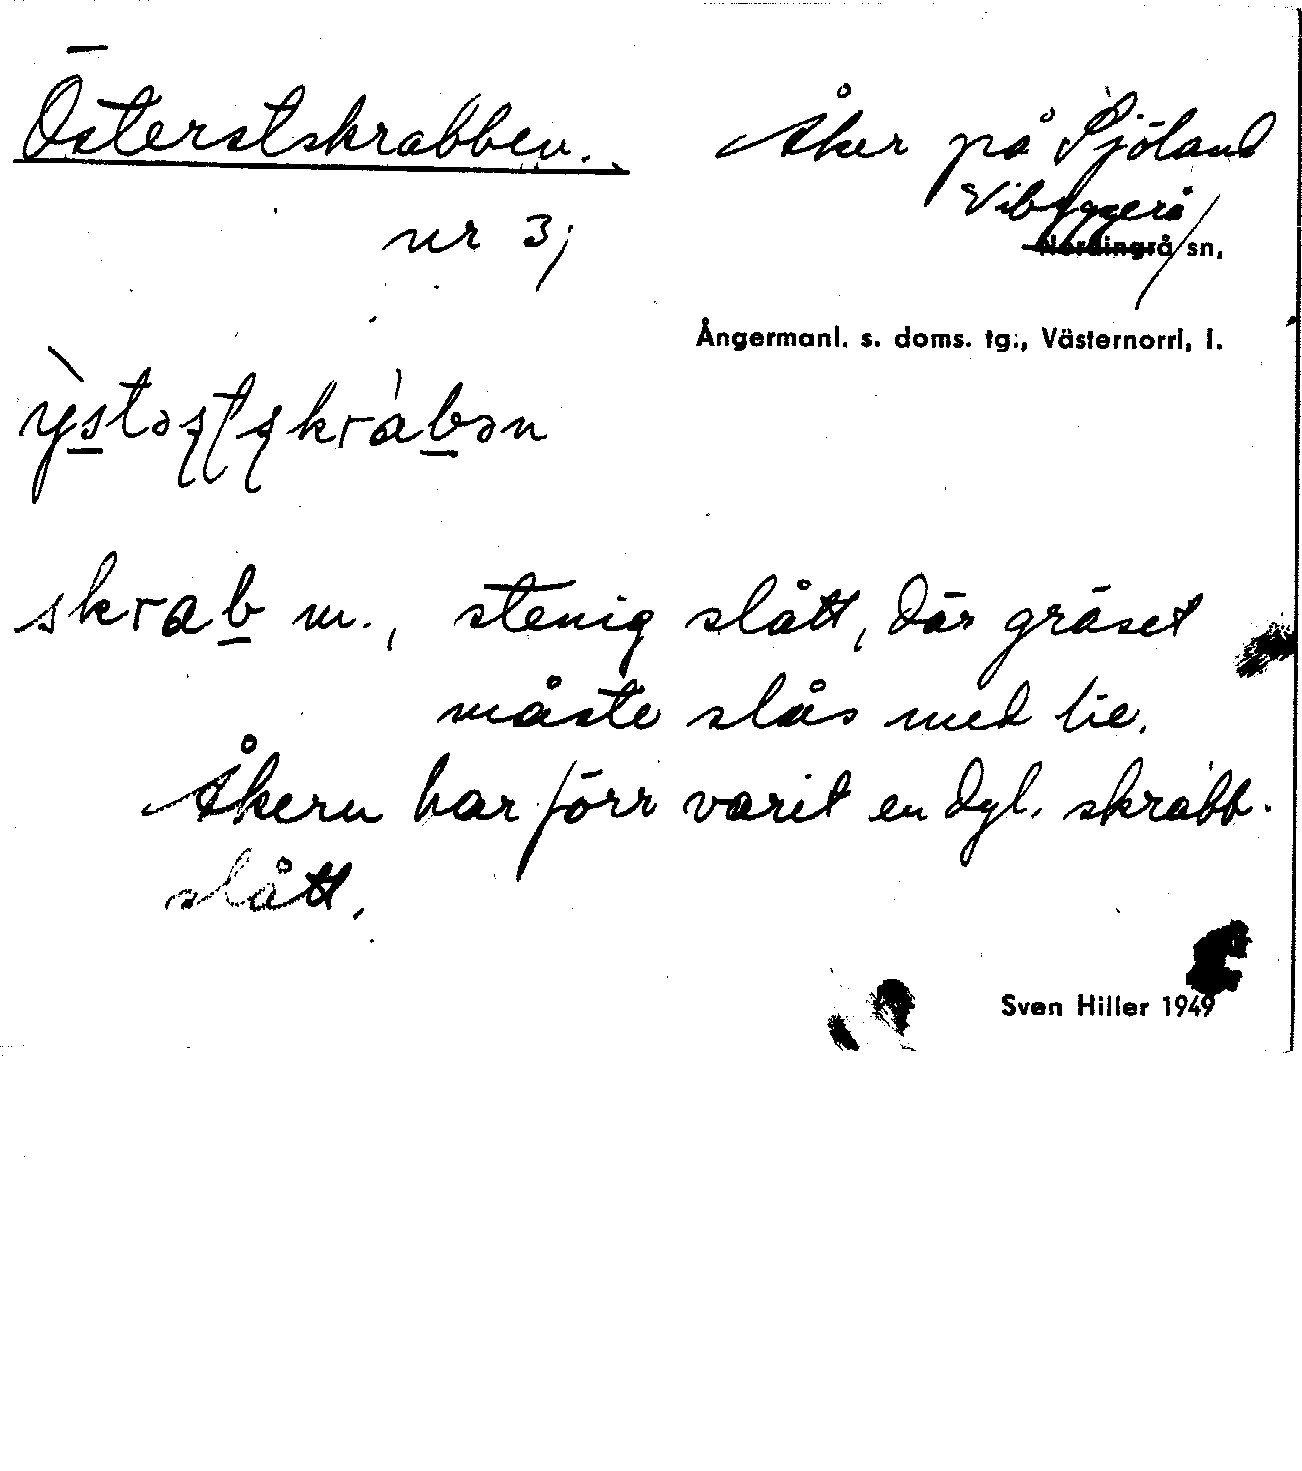 Österstskrabben.
Åker på Sjöland
nr 3;
Vibyggerå
Nordingrå sn,
Ångermanl. s. doms. tg., Västernorrl, l.
skrab m., stenig slått, där gräset
måste slås med lie.
Åkern har förr varit en dyl. skrabb-
slått.
Sven Hiller 1949